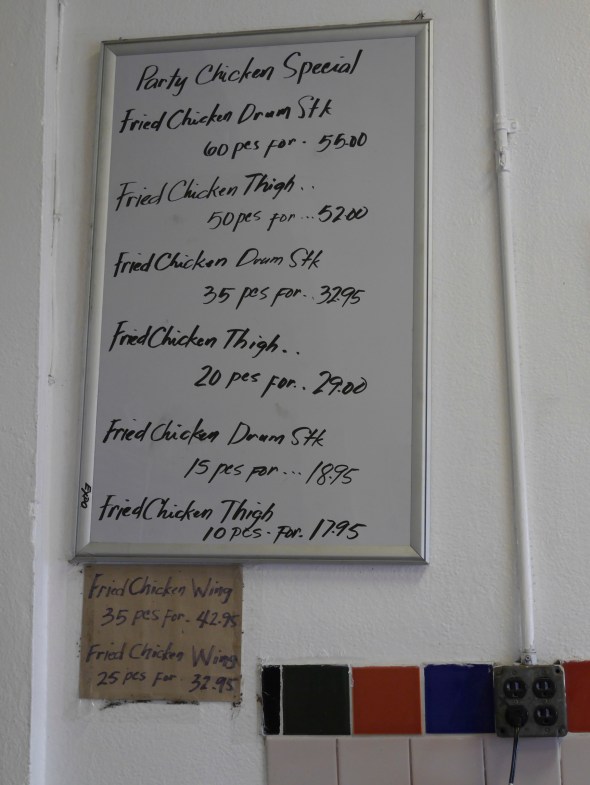 Party Chicken Special
Fried Chicken Drum Stk
60 pcs for. 55.00
Fried Chicken Thigh..
50 pcs for ... 52.00
Fried Chicken Drum Stk
35 pcs for.. 32.95
Fried Chicken Thigh..
20 pcs for.. 29.00
Fried Chicken Drum Stk
15 pcs for ... 18.95
Fried Chicken Thigh
10 pcs. for. 17.95
Fried Chicken Wing
35 pcs for. 42.95
Fried Chicken Wing
25 pcs for 32.95